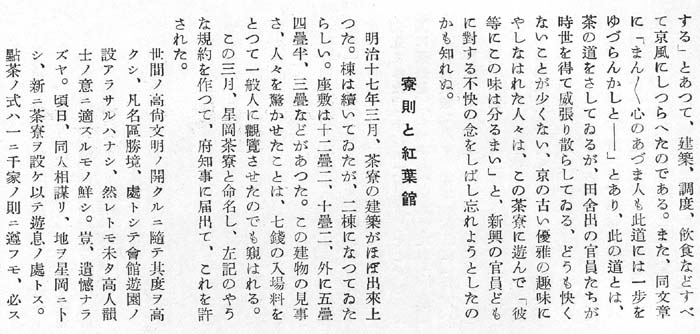 する」とあつて、建築、調度、飮食などすべ
て京風にしつらへたのである。また、同文章
に「まん〳〵心のあづま人も此道には一歩を
ゆづらんかしと――」とあり、此の道とは、
茶の道をさしてゐるが、田舍出の官員たちが
時世を得て威張り散らしてゐる、どうも快く
ないことが少くない、京の古い優雅の趣味に
やしなはれた人々は、この茶寮に遊んで「彼
等にこの味は分るまい」と、新興の官員ども
に對する不快の念をしばし忘れようとしたの
かも知れぬ。
寮則と紅葉館
明治十七年三月、茶寮の建築がほぼ出來上
つた。棟は續いてゐたが、二棟になつてゐた
らしい。座敷は十二疊二、十疊二、外に五疊
四疊半、三疊などがあつた。この建物の見事
さ、人々を驚かせたことは、七錢の入場料を
とつて一般人に觀覽させたのでも窺はれる。
この三月、星岡茶寮と命名し、左記のやう
な規約を作つて、府知事に届出て、これを許
された。
世間ノ高尙文明ノ開クルニ隨テ其度ヲ高
クシ、凡名區勝境、處トシテ會館遊園ノ
設アラサルハナシ、然レトモ未タ高人韻
士ノ意ニ適スルモノ鮮シ。豈、遺憾ナラ
ズヤ。頃日、同人相謀リ、地ヲ星岡ニト
シ、新ニ茶寮ヲ設ケ以テ遊息ノ處トス。
點茶ノ式ハ一ニ千家ノ則ニ遵フモ、必ス